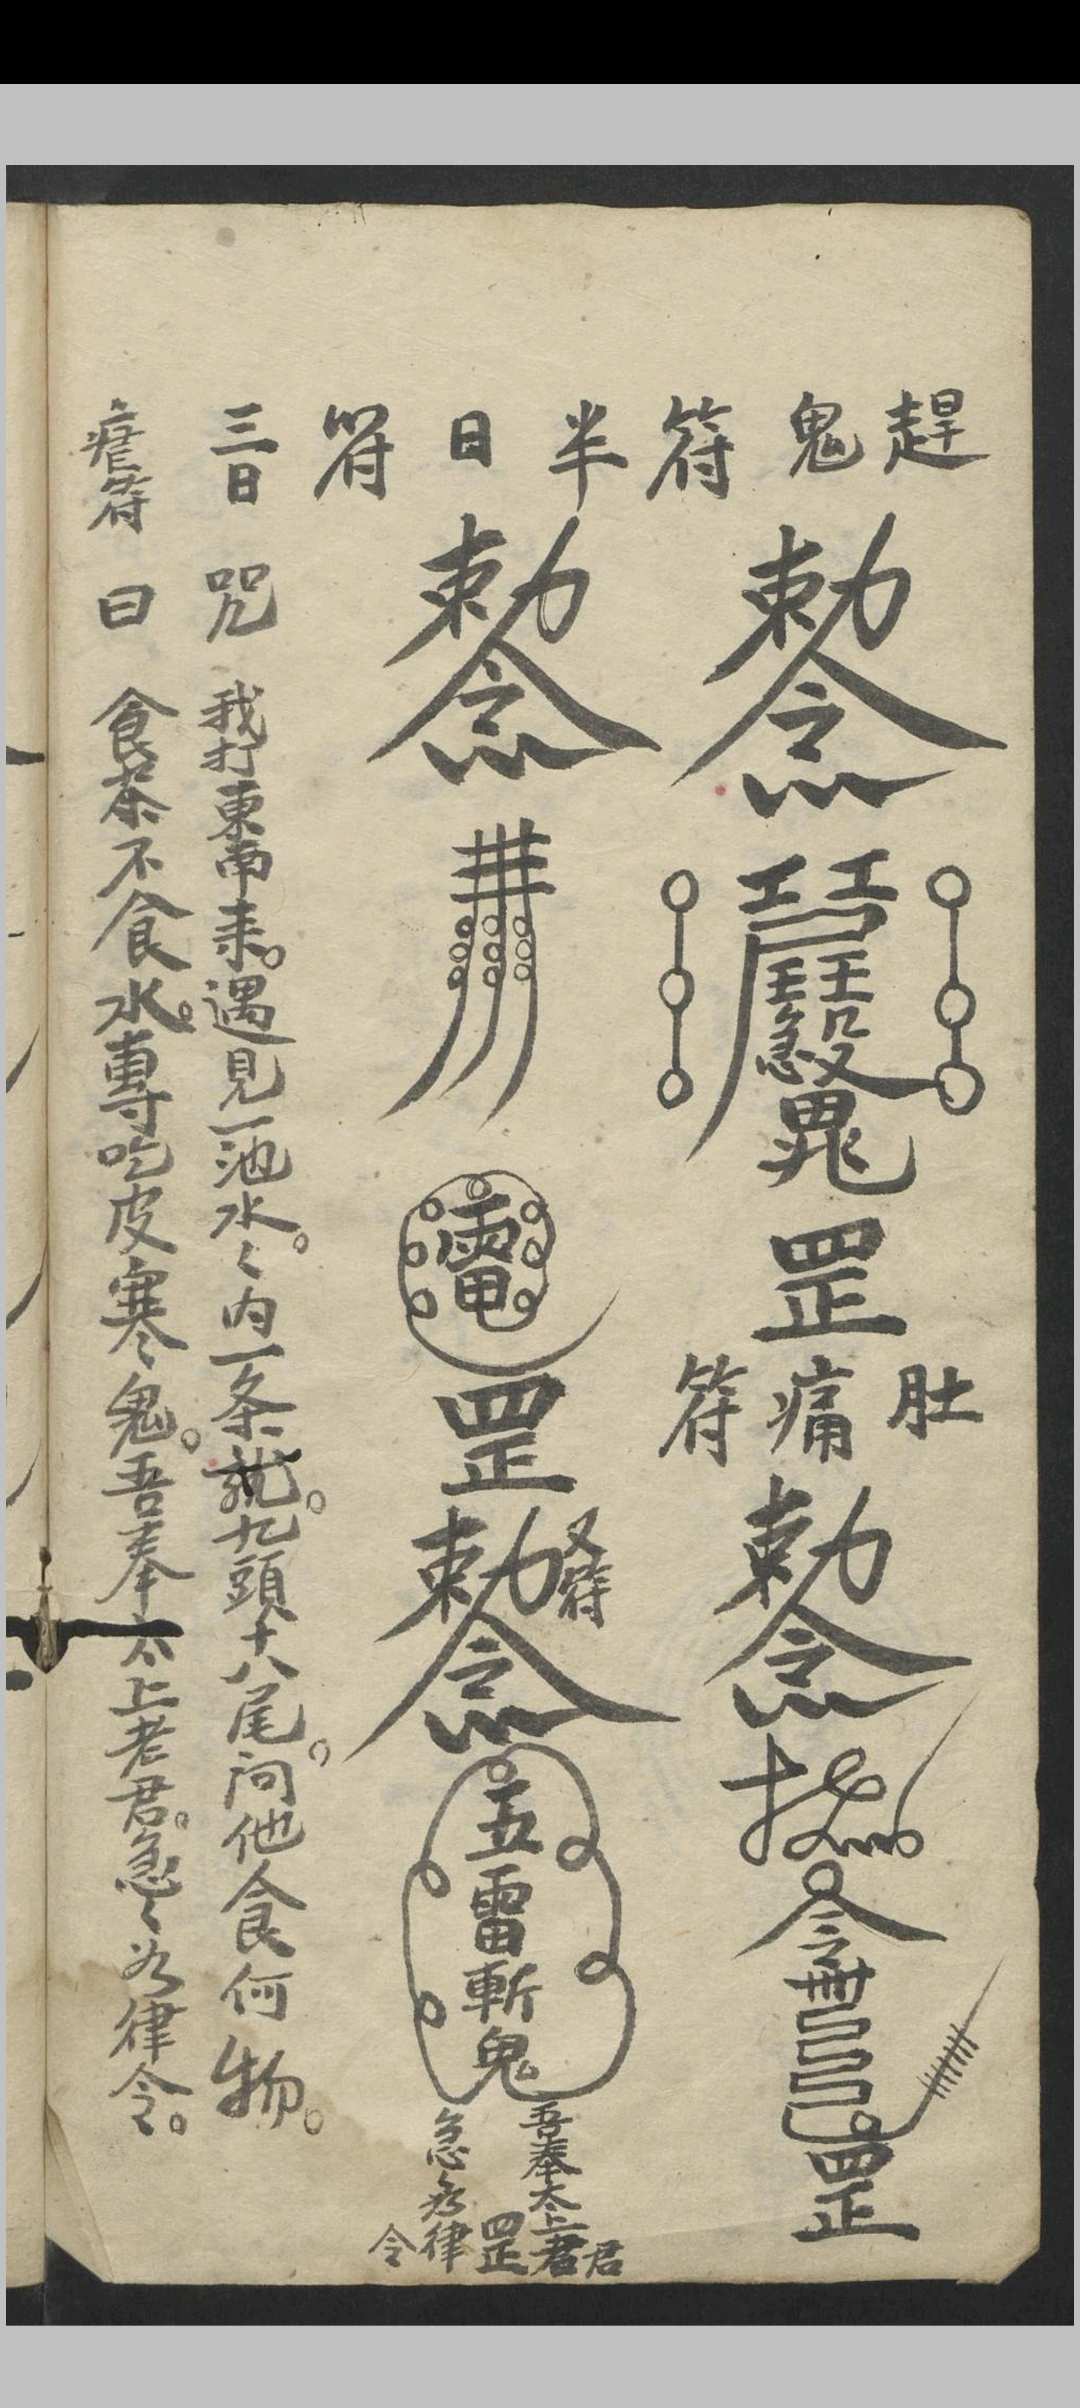 趕鬼符
勅令
罡
肚痛符
勅令
令
罡
半日符
勅令
罡
又符
勅令
五雷斬鬼
吾奉太上老君
罡
急急為律令
三日瘧符
咒曰
我打東南来。遇見一池水。々内一条龍。九頭十八尾。问他食何物。
食茶不食水。專吃皮寒々鬼。吾奉太上老君。急々为律令。